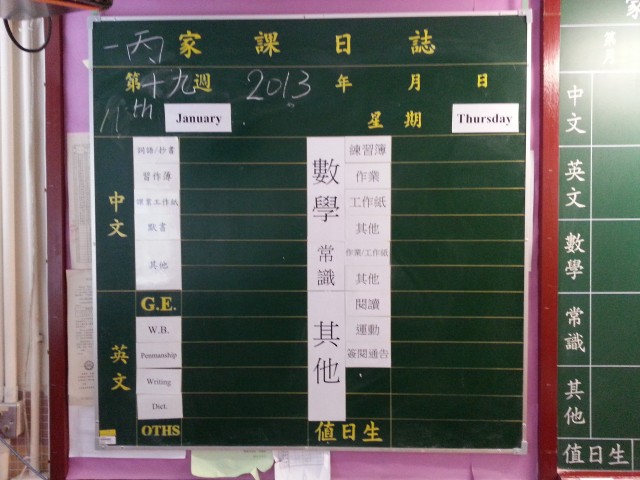 一丙 家課日誌
第十九週 2013 年 月 日
11th January 星期 Thursday
中文
詞語/抄書
習作簿
課業工作紙
默書
其他
英文
G.E.
W.B.
Penmanship
Writing
Dict.
OTHS
數學
練習簿
作業
工作紙
其他
常識
作業/工作紙
其他
其他
閱讀
運動
簽閱通告
值日生
中文
英文
數學
常識
其他
值日生